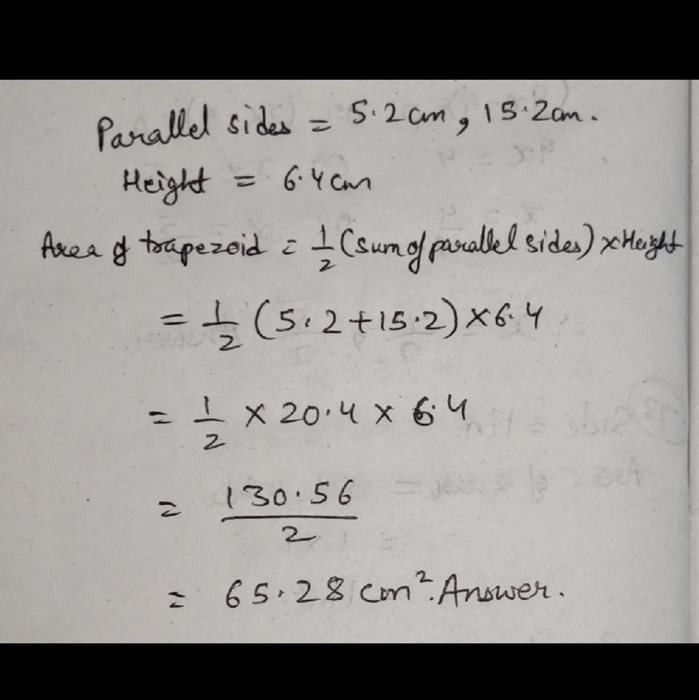 Parallel sides = 5.2cm, 15.2cm.
Height = 6.4cm
Area of trapezoid = 1/2 (sum of parallel sides) × Height
= 1/2 (5.2+15.2)×6.4
= 1/2 × 20.4 × 6.4
= 130.56/2
= 65.28 cm². Answer.